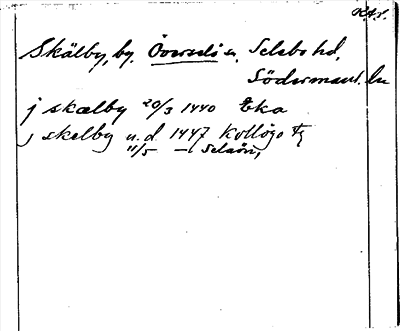 R.A.
Skälby, by. Överselö sn, Selebo hd,
Södermanl. ln
j skælby 20/3 1440 Eka
j skelby u.d. 1447 Kolløgo
11/5 — Selaön,